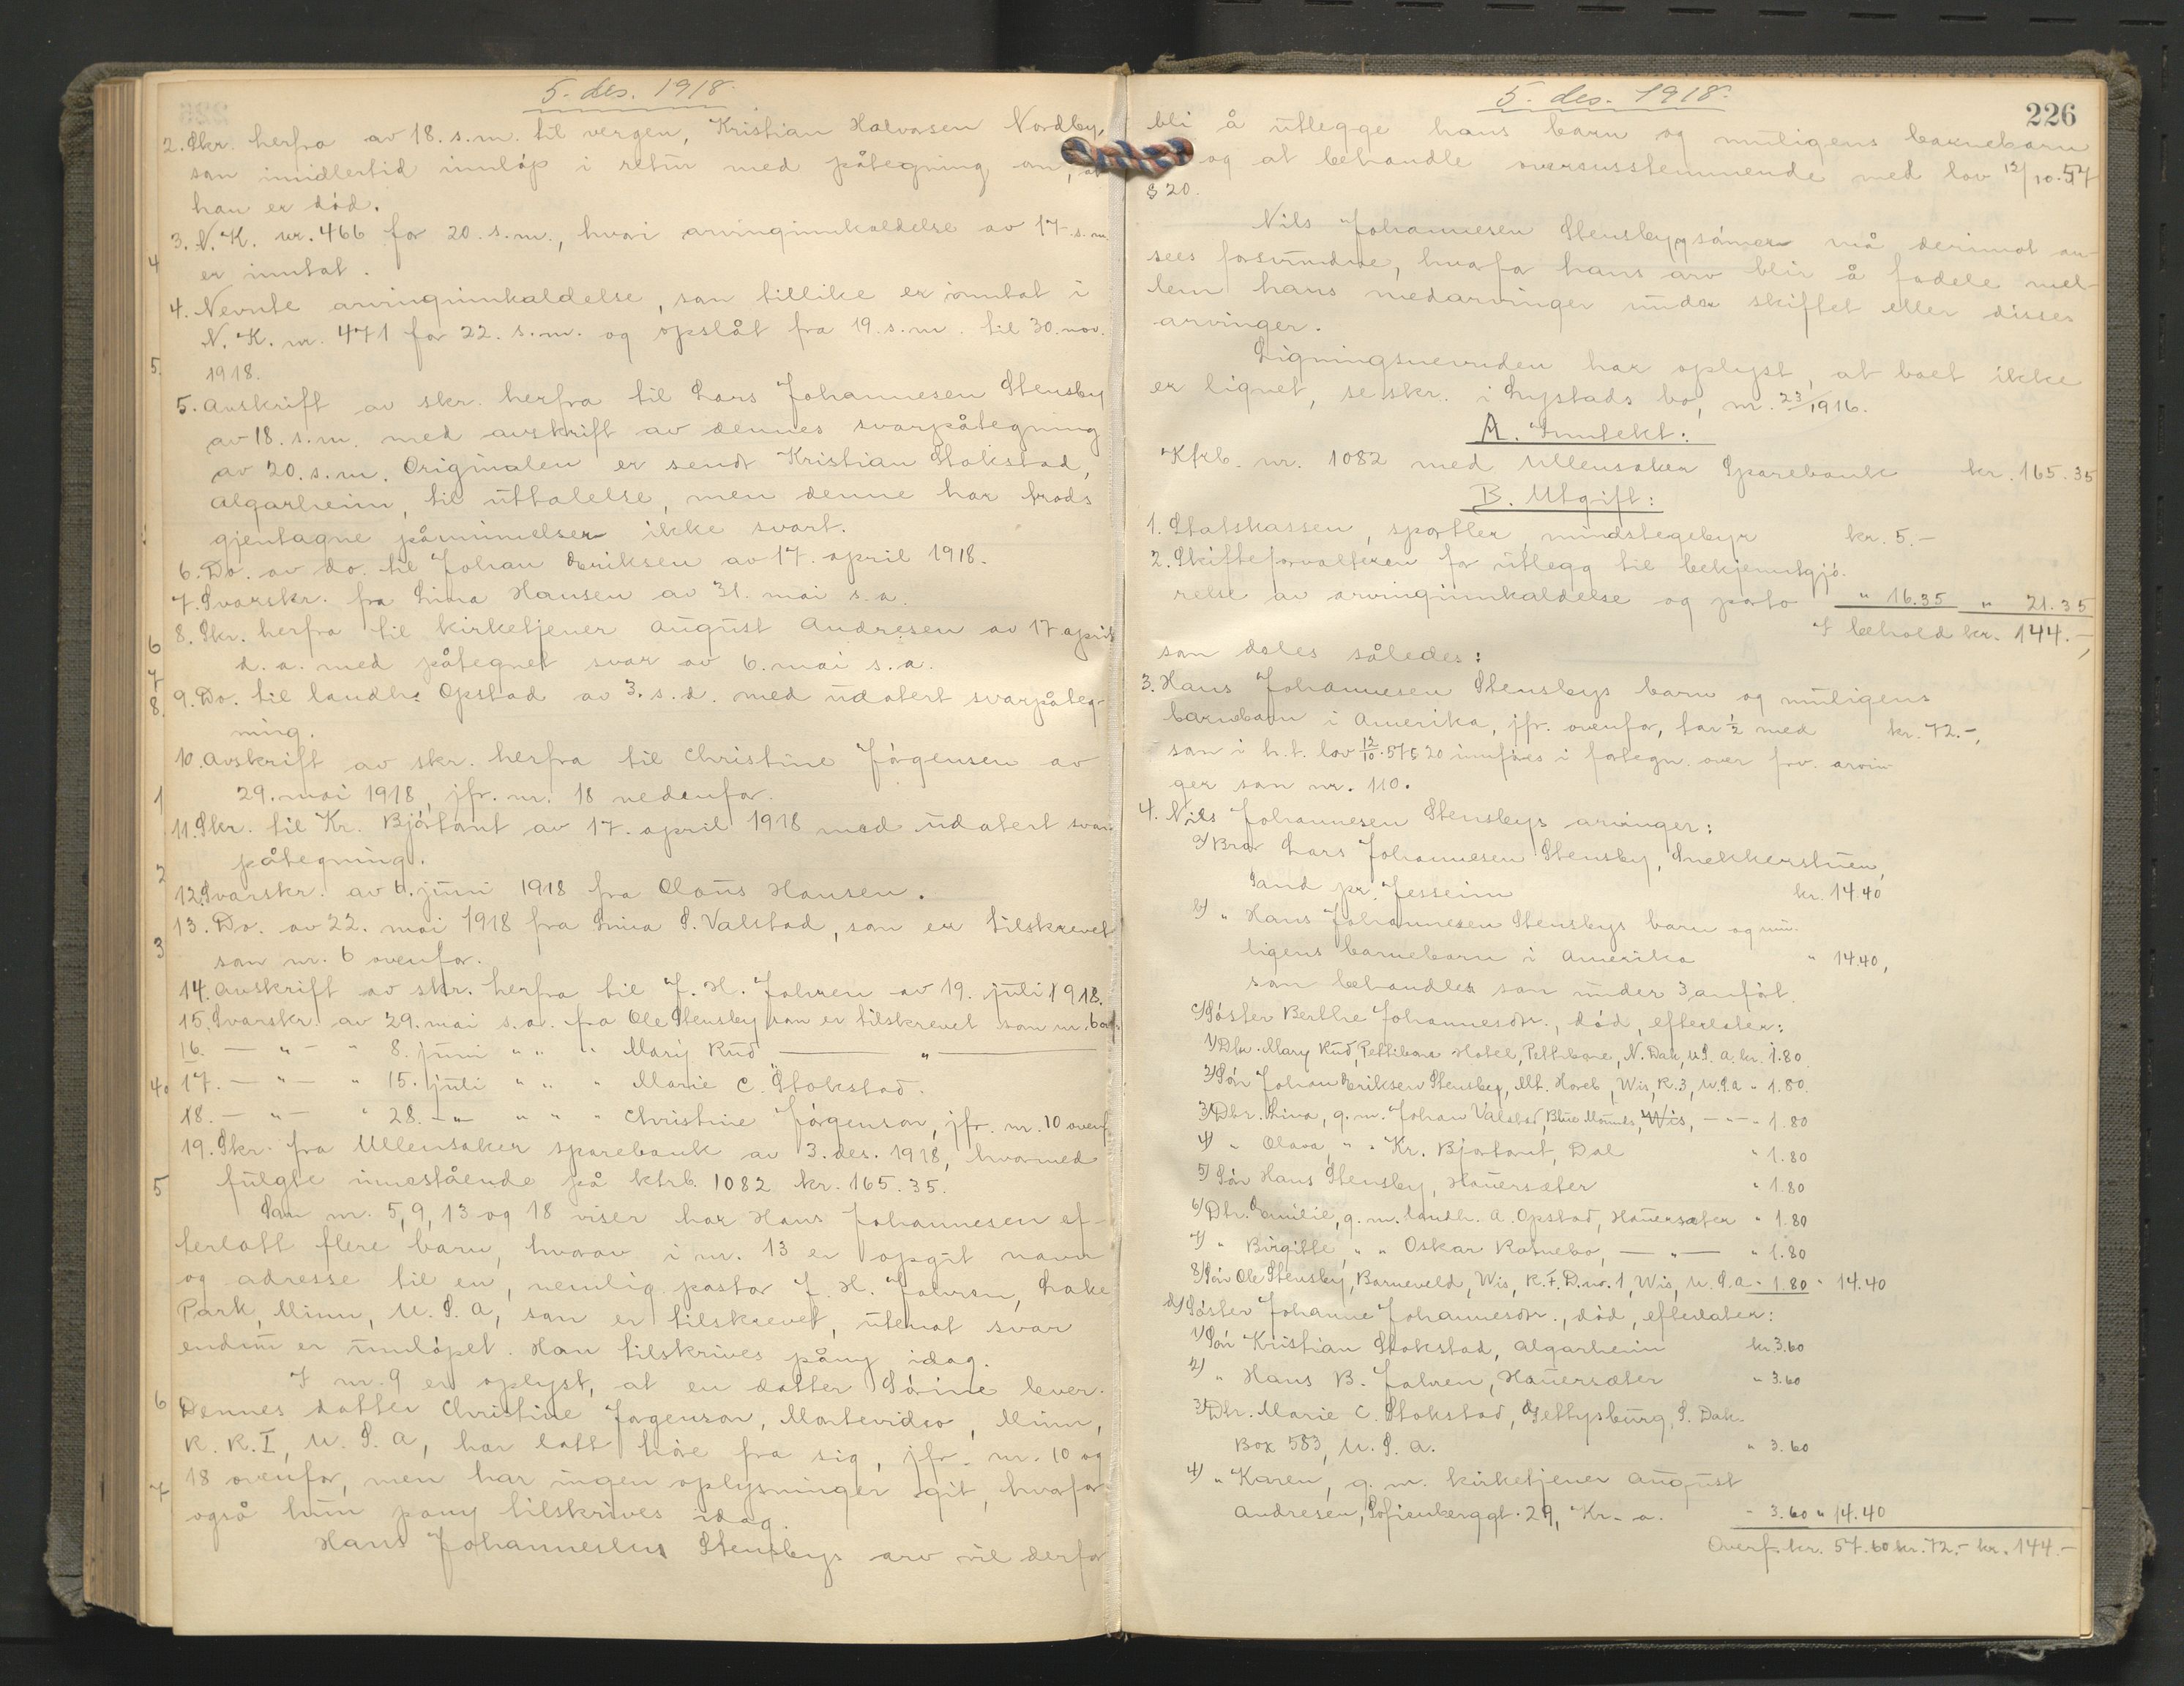 5. des. 1918.
2. Skr. herfra av 18. s.m. til vergen, Kristian Halvorsen Nordby,
som imidlertid innløp i retur med påtegning om, at
han er død.
3. N. K. nr. 466 for 20. s.m., hvori arvinginnkaldelse av 17. s.m.
er inntat.
4. Nevnte arvinginnkaldelse, som tillike er inntat i
N. K. nr. 471 for 22. s.m. og opslåt fra 19. s.m. til 30. nov.
1918.
5. Avskrift av skr. herfra til Lars Johannesen Stensby
av 18. s.m. med avskrift av dennes svarpåtegning
av 20. s.m. Originalen er sendt Kristian Stokstad,
Algarheim, til uttalelse, men denne har trods
gjentagne påminnelser ikke svart.
6. Do. av do. til Johan Eriksen av 17. april 1918.
7. Svarskr. fra Lina Hansen av 31. mai s.a.
8. Skr. herfra til kirketjener August Andresen av 17. april
d.a. med påtegnet svar av 6. mai s.a.
9. Do. til landh. Opstad av 3. s.d. med udatert svarpåteg-
ning.
10. Avskrift av skr. herfra til Christine Jørgensen av
29. mai 1918, jfr. nr. 18 nedenfor.
11. Skr. til Kr. Bjørtomt av 17. april 1918 med udatert svar-
påtegning.
12. Svarskr. av 6. juni 1918 fra Olaus Hansen.
13. Do. av 22. mai 1918 fra Lina S. Valstad, som er tilskrevet
som nr. 6 ovenfor.
14. Avskrift av skr. herfra til J. H. Jahren av 19. juli 1918.
15. Svarskr. av 29. mai s.a. fra Ole Stensby som er tilskrevet som nr. 6
16. — " — " 8. juni " " " Mary Rud — " —
17. — " — " 15. juli " " " Marie C. Stokstad.
18. — " — " 28. — " " " " Christine Jørgenson, jfr. nr. 10 ovenf.
19. Skr. fra Ullensaker sparebank av 3. des. 1918, hvormed
fulgte innestående på ktrb. 1082 kr. 165.35.
Som nr. 5, 9, 13 og 18 viser har Hans Johannesen ef-
terlatt flere barn, hvorav i nr. 13 er opgit navn
og adresse til en, nemlig pastor J. H. Jahren, Lake
Park, Minn, U.S.A, som er tilskrevet, uten at svar
endnu er innløpet. Han tilskrives påny idag.
I nr. 9 er oplyst, at en datter Sørine lever.
Dennes datter Christine Jorgenson, Montevideo, Minn,
R. R. I, U.S.A, har latt høre fra sig, jfr. nr. 10 og
18 ovenfor, men har ingen oplysninger git, hvorfor
også hun påny tilskrives idag.
Hans Johannesens Stensbys arv vil derfor
5. des. 1918.
226
bli å utlegge hans barn og muligens barnebarn
og at behandle overensstemmende med lov 12/10.57
§ 20.
Nils Johannesen Stensby, sømer må derimot an-
sees forsvundne, hvorfor hans arv blir å fordele mel-
lem hans medarvinger under skiftet eller disses
arvinger.
Ligningsnevnden har oplyst, at boet ikke
er lignet, se skr. i Lystads bo, nr. 23/1916.
A. Inntekt:
Ktrb. nr. 1082 med Ullensaker Sparebank kr. 165.35
B. Utgift:
1. Statskassen, sportler, mindstegebyr kr. 5.-
2. Skifteforvalteren for utlegg til bekjenntgjø-
relse av arvinginnkaldelse og porto " 16.35 " 21.35
I behold kr. 144.-,
som deles således:
3. Hans Johannesen Stensbys barn og muligens
barnebarn i Amerika, jfr. ovenfor, tar 1/2 med kr. 72.-,
som i h.t. lov 12/10.57 § 20 innføres i fortegn. over forv. arvin-
ger som nr. 110.
4. Nils Johannesen Stensbys arvinger:
a) Bror Lars Johannesen Stensby, Snekkerstuen,
Sand pr. Jessheim kr. 14.40
b) " Hans Johannesen Stensbys barn og mu-
ligens barnebarn i Amerika " 14.40,
som behandles som under 3 anført.
c) Søster Berthe Johannesdtr., død, efterlater:
1) Dtr. Mary Rud, Pettibone Hotel, Pettibone, N. Dak, U.S.A. kr. 1.80
2) Søn Johan Eriksen Stensby, Mt. Horeb, Wis, R. 3, U.S.A " 1.80
3) Dtr. Lina, g.m. Johan Valstad, Blue Mounds, Wis, — " — " 1.80
4) " Olava, " " Kr. Bjørtomt, Dal " 1.80
5) Søn Hans Stensby, Hauersæter " 1.80
6) Dtr. Emilie, g.m. landh. A. Opstad, Hauersæter " 1.80
7) " Birgitte, " " Oskar Ratnebo, — " — " 1.80
8) Søn Ole Stensby, Barneveld, Wis, R.F.D. nr. 1, Wis, U.S.A " 1.80 " 14.40
d) Søster Johanne Johannesdtr., død, efterlater:
1) Søn Kristian Stokstad, Algarheim kr. 3.60
2) " Hans B. Jahren, Hauersæter " 3.60
3) Dtr. Marie C. Stokstad, Gettysburg, S. Dak.
Box 583, U.S.A. " 3.60
4) " Karen, g.m. kirketjener August
Andresen, Sofienberggt. 29, Kr.-a. " 3.60 " 14.40
Overf. kr. 57.60 kr. 72.- kr. 144.-